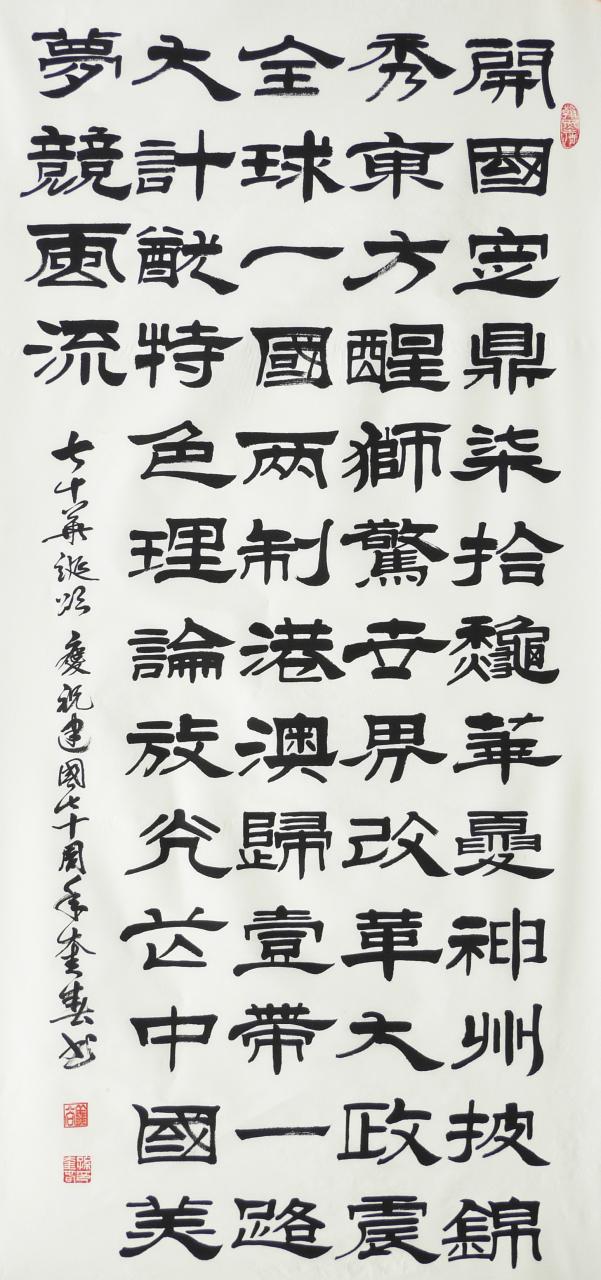 開國定鼎柒拾龝華夏神州披錦
秀東方醒獅驚世界改革大政震
全球一國兩制港澳歸壹帶一路
大計猷特色理論放光芒中國美
夢競風流
七十華誕頌 慶祝建國七十周年 奎春书